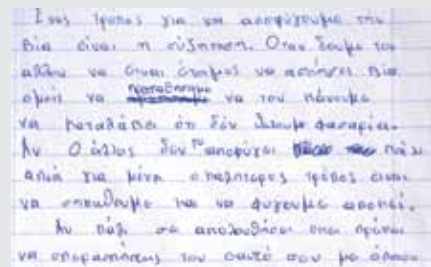 Ενας τροπος για να αποφύγουμε την
βία είναι η συζητηση. Οταν δουμε τον
αλλον να ειναι έτοιμος να ασκήσει βια
εμείς να προσπαθησουμε να τον κάνουμε
να καταλάβει ότι δέν θέλουμε φασαρία.
Αν ο άλλος δεν το αποφύγει πάλι
απλά για μένα ο καλητερος τρόπος ειναι
να σηκωθουμε και να φύγουμε απο εκεί.
Αν πάλι σε ακολουθησει εκει πρέπει
να υπερασπήσεις τον εαυτό σου με όποιο